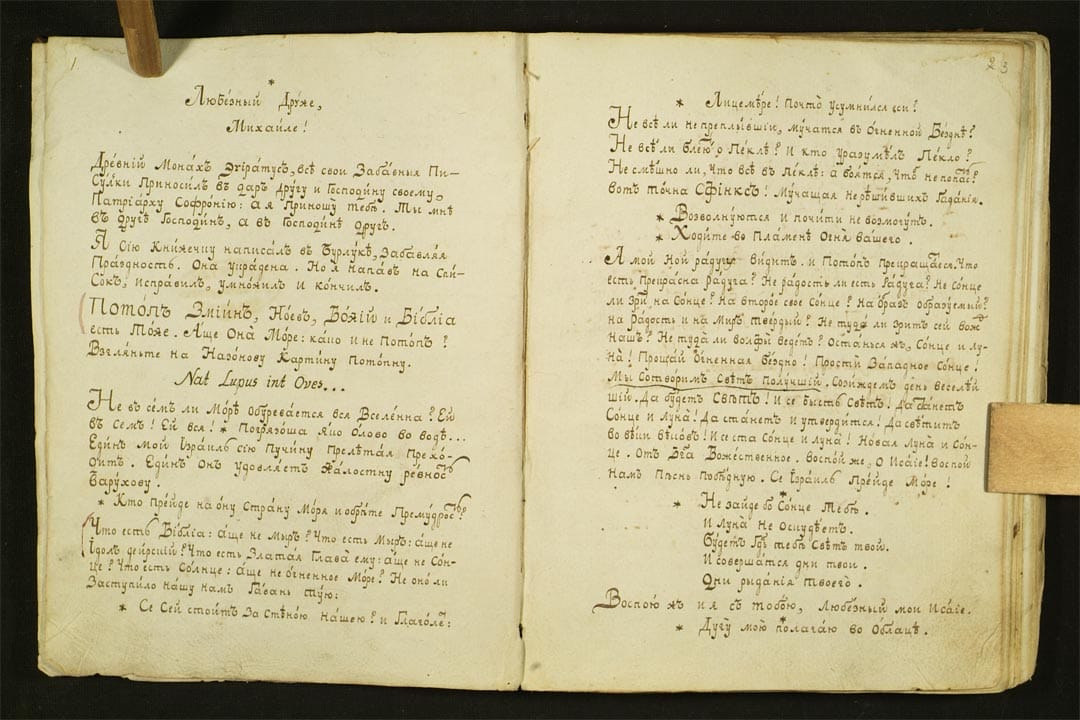 1
*
Любе́зный Дру́же,
Михаи́ле!
Дре́вній Мона́хъ Эпіра́тусъ, всѣ свои Заба́вныя Пи-
Су́лки Приноси́лъ въ даръ дру́гу и Господи́ну своему,
Патріа́рху Софро́нію: а я Приношу́ тебѣ. Ты мнѣ
въ дру́гѣ Господи́нъ, а въ Господи́нѣ друг.
Я Сію Кни́жечку написа́лъ въ Бурлукѣ, Забавля́я
Пра́здность. Она́ укра́дена. Но я напа́въ на Спи-
Сокъ, испра́вилъ, умно́жилъ и ко́нчилъ.
Пото́пъ Змі́инъ, Но́евъ, Бо́жій и Бі́бліа
есть То́же. А́ще Она Мо́ре: ка́ко и не Пото́пъ?
Взгля́ньте на Назо́нову Карти́ну Пото́пну.
Nat Lupus int Oves...
Не въ се́мъ ли Мо́рѣ Обурева́ется вся Вселе́нна? Ей
въ Семъ! Ей вся! * Погрязо́ша я́ко О́лово во водѣ...
Еди́нъ мой Ізра́иль сію Пучи́ну Прелѣта́я Прехо-
дитъ. Еди́нъ Онъ удовля́етъ Жа́лостну ре́вность
Вару́хову.
* Кто пре́йде на о́ну Стра́ну Мо́ря и обрѣ́те Прему́дрость?
Что есть Бі́бліа: а́ще не Мыръ? Что есть Мыръ: а́ще не
Ідолъ деи́рскій? Что есть Злата́я Глава ему: а́ще не Со́н-
це? Что есть Со́лнце: а́ще не о́гненное Мо́ре? Не оно́ ли
Заступи́ло на́шу намъ Гава́нь тую:
* Се Сей стои́тъ За Стѣно́ю На́шею? и Глаго́ле:
2 3
* Лицемѣ́ре! Почто́ усумни́лся еси?
Не всѣ ли не преплы́вшіи, му́чатся въ о́гненной Бе́зднѣ?
Не всѣ ли блею́ о Пе́клѣ? И кто уразумѣ́лъ Пе́кло?
Не смѣшно́ ли, Что всѣ въ Пе́клѣ: а боя́тся, Что́б не попа́сть?
Вотъ то́чна Сфинксъ! Му́чащая Не рѣши́вшихъ Гада́нія.
* Возволну́ются и почи́ти не возмо́гутъ.
* Ходи́те во Пла́менѣ Огня́ ва́шего.
А мой Ной ра́дугу ви́дитъ. и Пото́пъ Прекраща́ется. Что
есть Прекра́сна ра́дуга? Не ра́дость ли есть Ра́дуга? Не со́нце
ли зри́ на Со́нце? На второ́е свое Со́нце? На о́бразъ образу́емый?
на Ра́дость и на Миръ тве́рдый? Не туда́ ли зритъ сей вождь
нашъ? Не туда́ ли волфы ведетъ? Оста́нься жъ, Со́нце и лу-
на́! Проща́й о́гненная бе́здно! Прости́ За́падное Со́нце!
Мы Сотвори́мъ Свѣтъ полу́чшій. Сози́ждемъ день веселѣ́й
шій. Да бу́детъ Свѣтъ! И се бысть Свѣтъ. Да ста́нетъ
Со́нце и Луна́! Да ста́нетъ и утверди́тся! Да свѣ́титъ
во вѣ́ки вѣко́въ! И се ста Со́нце и луна́! Но́вая Луна́ и Со́н-
це. Отъ Бга Боже́ственное. Воспо́й же, О Иса́іе! Воспо́й
Намъ Пѣснь побѣ́дную. Се Ізра́иль Пре́йде Мо́ре!
* Не за́йде бо Со́нце Тебѣ.
И Луна́ Не Оскудѣ́етъ.
Бу́детъ Гдь тебѣ Свѣтъ твой.
И соверша́тся дни твои.
Дни рыда́нія твоего́.
Воспою́ жъ и я съ тобою, Любе́зный мои Иса́іе.
* Ду́гу мою́ полага́ю во Облацѣ.